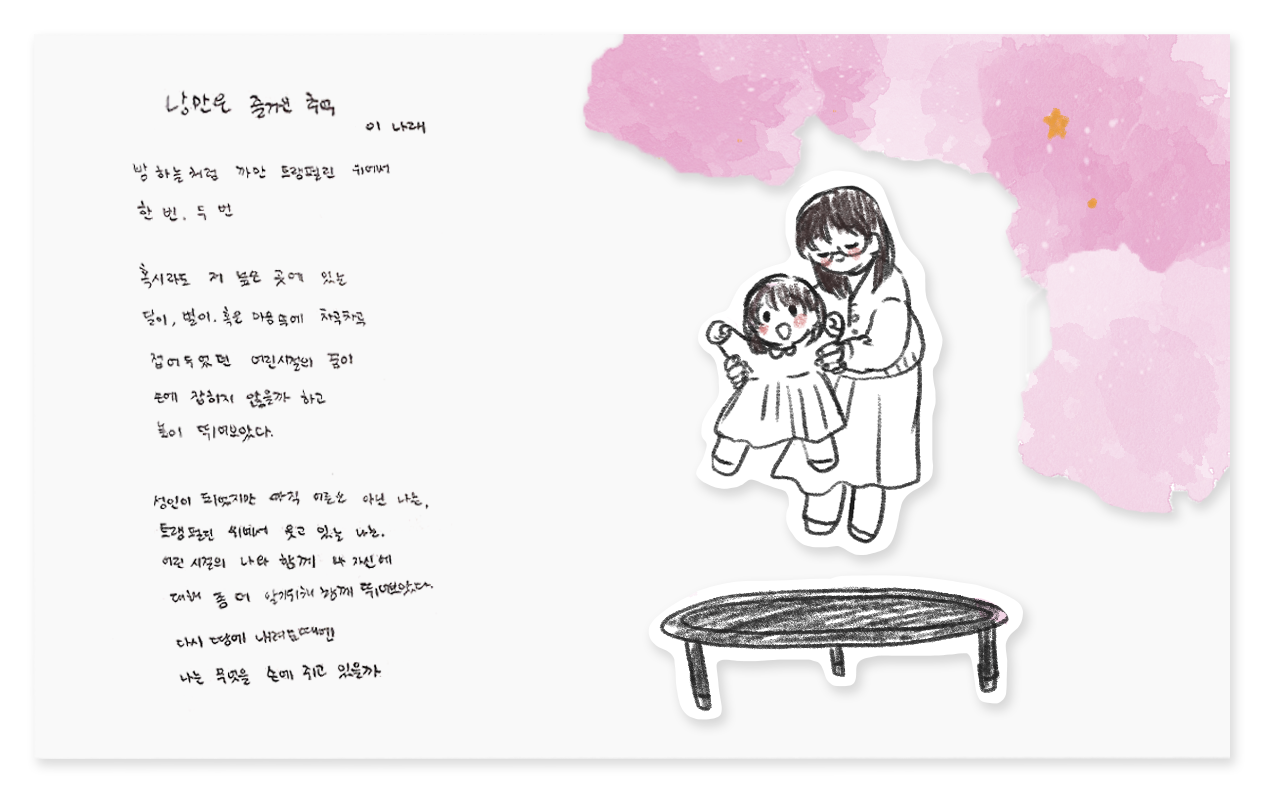 낭만은 즐거운 추억
이 나래
밤 하늘처럼 까만 트램펄린 위에서
한 번, 두 번
혹시라도 저 높은 곳에 있는
달이, 별이. 혹은 마음속에 차곡차곡
접어두었던 어린시절의 꿈이
손에 잡히지 않을까 하고
높이 뛰어보았다.
성인이 되었지만 아직 어른은 아닌 나는,
트램펄린 위에서 웃고 있는 나는.
어린 시절의 나와 함께 나 자신에
대해 좀 더 알기위해 함께 뛰어보았다.
다시 땅에 내려올때엔
나는 무엇을 손에 쥐고 있을까